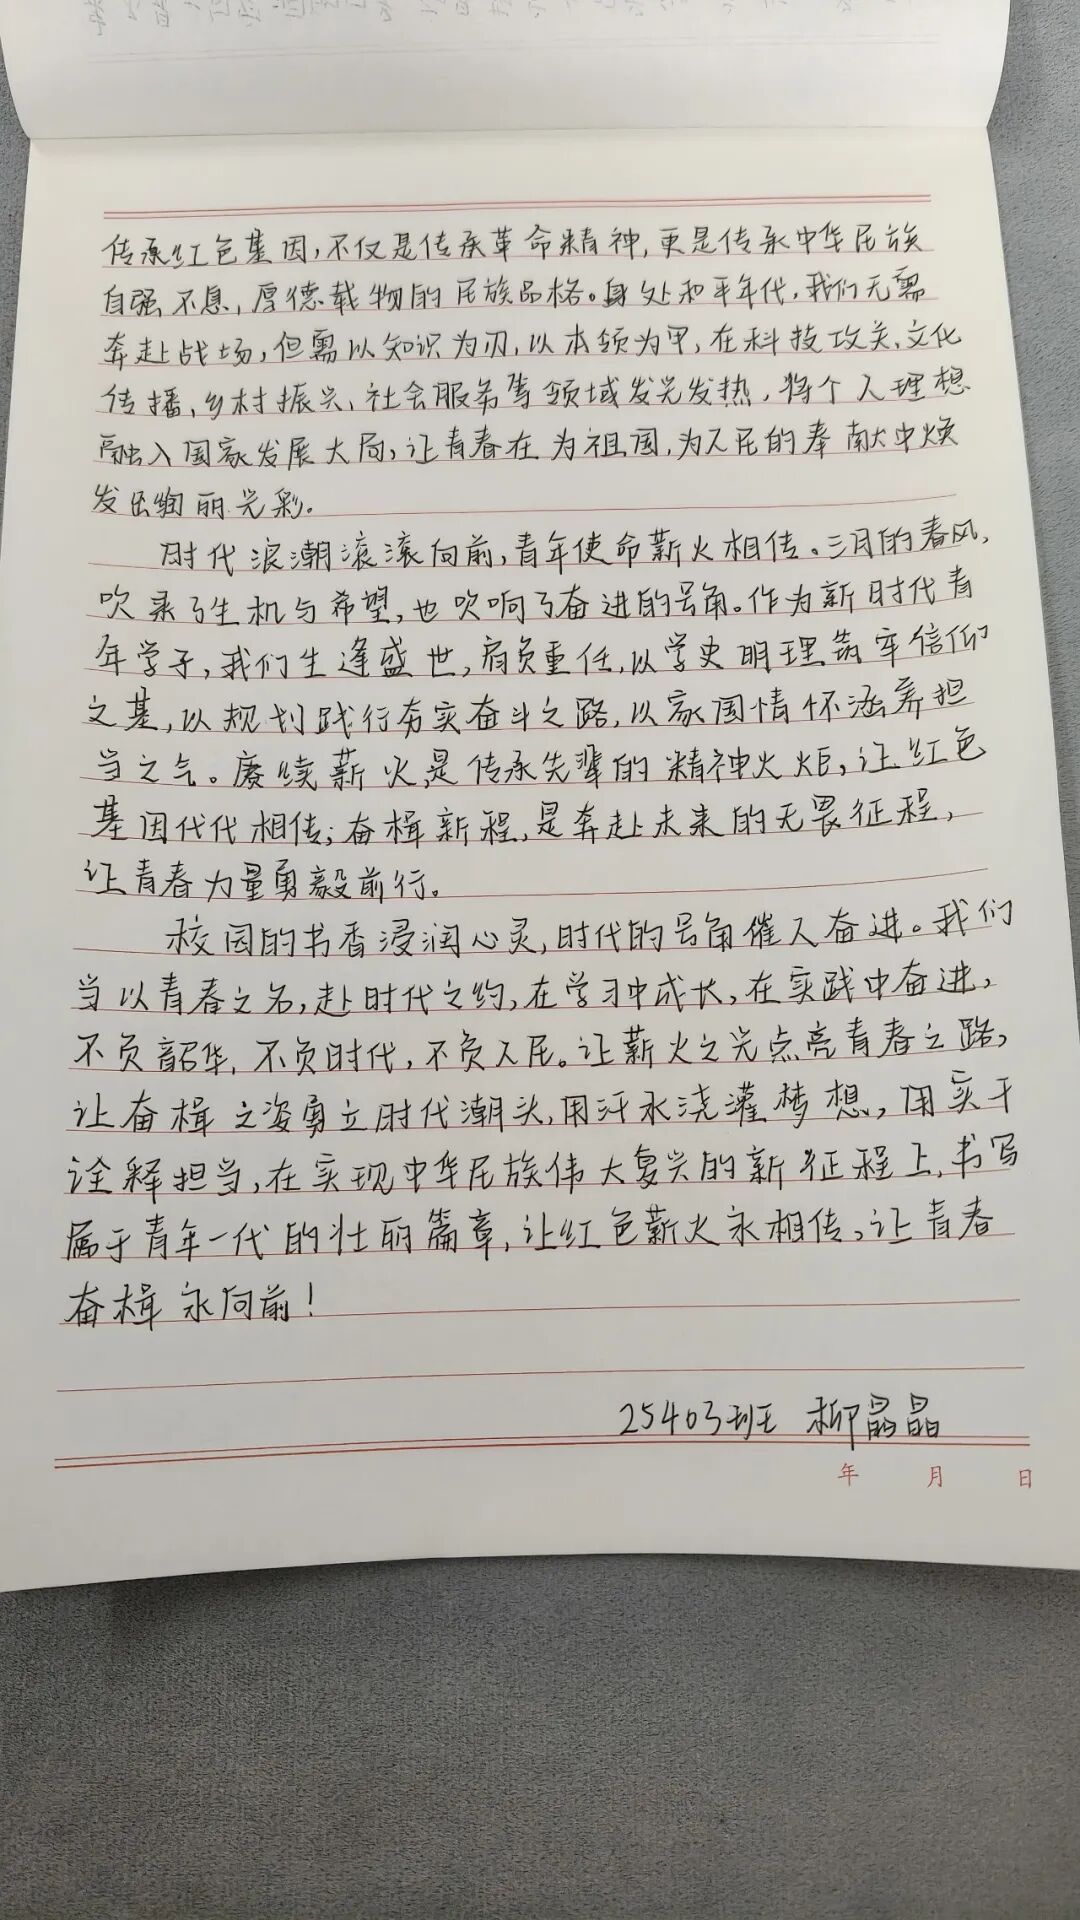 传承红色基因,不仅是传承革命精神,更是传承中华民族
自强不息,厚德载物的民族品格。身处和平年代,我们无需
奔赴战场,但需以知识为刃,以本领为甲,在科技攻关、文化
传播,乡村振兴、社会服务等领域发光发热,将个人理想
融入国家发展大局,让青春在为祖国,为人民的奉献中焕
发出绚丽光彩。
时代浪潮滚滚向前,青年使命薪火相传。三月的春风,
吹来了生机与希望,也吹响了奋进的号角。作为新时代青
年学子,我们生逢盛世,肩负重任,以学史明理筑牢信仰
之基,以规划践行夯实奋斗之路,以家国情怀涵养担
当之气。赓续薪火,是传承先辈的精神火炬,让红色
基因代代相传;奋楫新程,是奔赴未来的无畏征程,
让青春力量勇毅前行。
校园的书香浸润心灵,时代的号角催人奋进。我们
当以青春之名,赴时代之约,在学习中成长,在实践中奋进,
不负韶华,不负时代,不负人民。让薪火之光点亮青春之路,
让奋楫之姿勇立时代潮头,用汗水浇灌梦想,用实干
诠释担当,在实现中华民族伟大复兴的新征程上,书写
属于青年一代的壮丽篇章,让红色薪火永相传,让青春
奋楫永向前!
25403班 柳晶晶
年 月 日